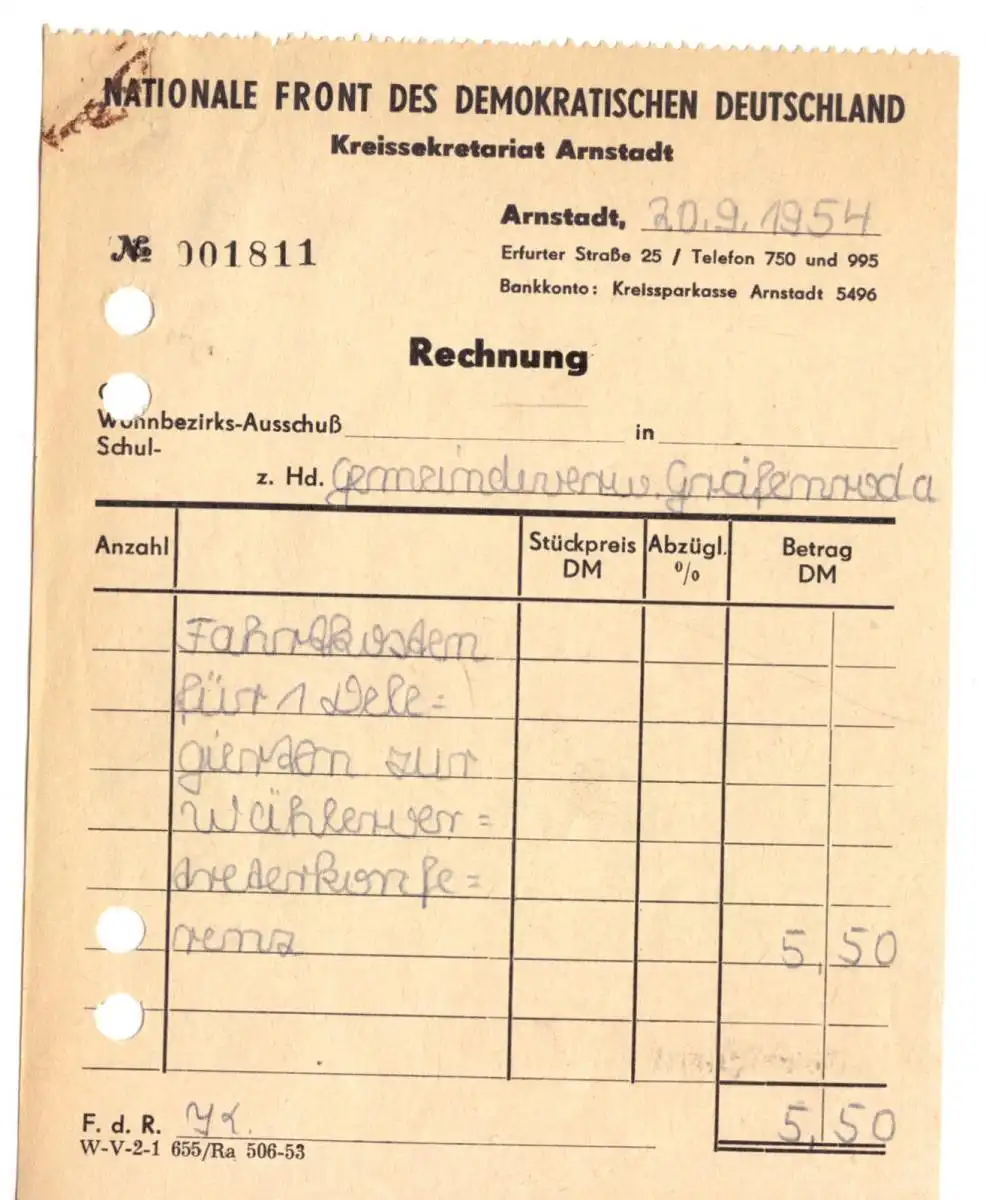 NATIONALE FRONT DES DEMOKRATISCHEN DEUTSCHLAND
Kreissekretariat Arnstadt
Arnstadt, 20.9.1954
№ 001811
Erfurter Straße 25 / Telefon 750 und 995
Bankkonto: Kreissparkasse Arnstadt 5496
Rechnung
Wohnbezirks-Ausschuß in
Schul-
z. Hd. Gemeindeverw. Gräfenroda
Anzahl Stückpreis DM Abzügl. % Betrag DM
Fahrtkosten
für 1 Dele=
gierten zur
Wählerver=
treterkonfe=
renz 5,50
5,50
F. d. R.
W-V-2-1 655/Ra 506-53